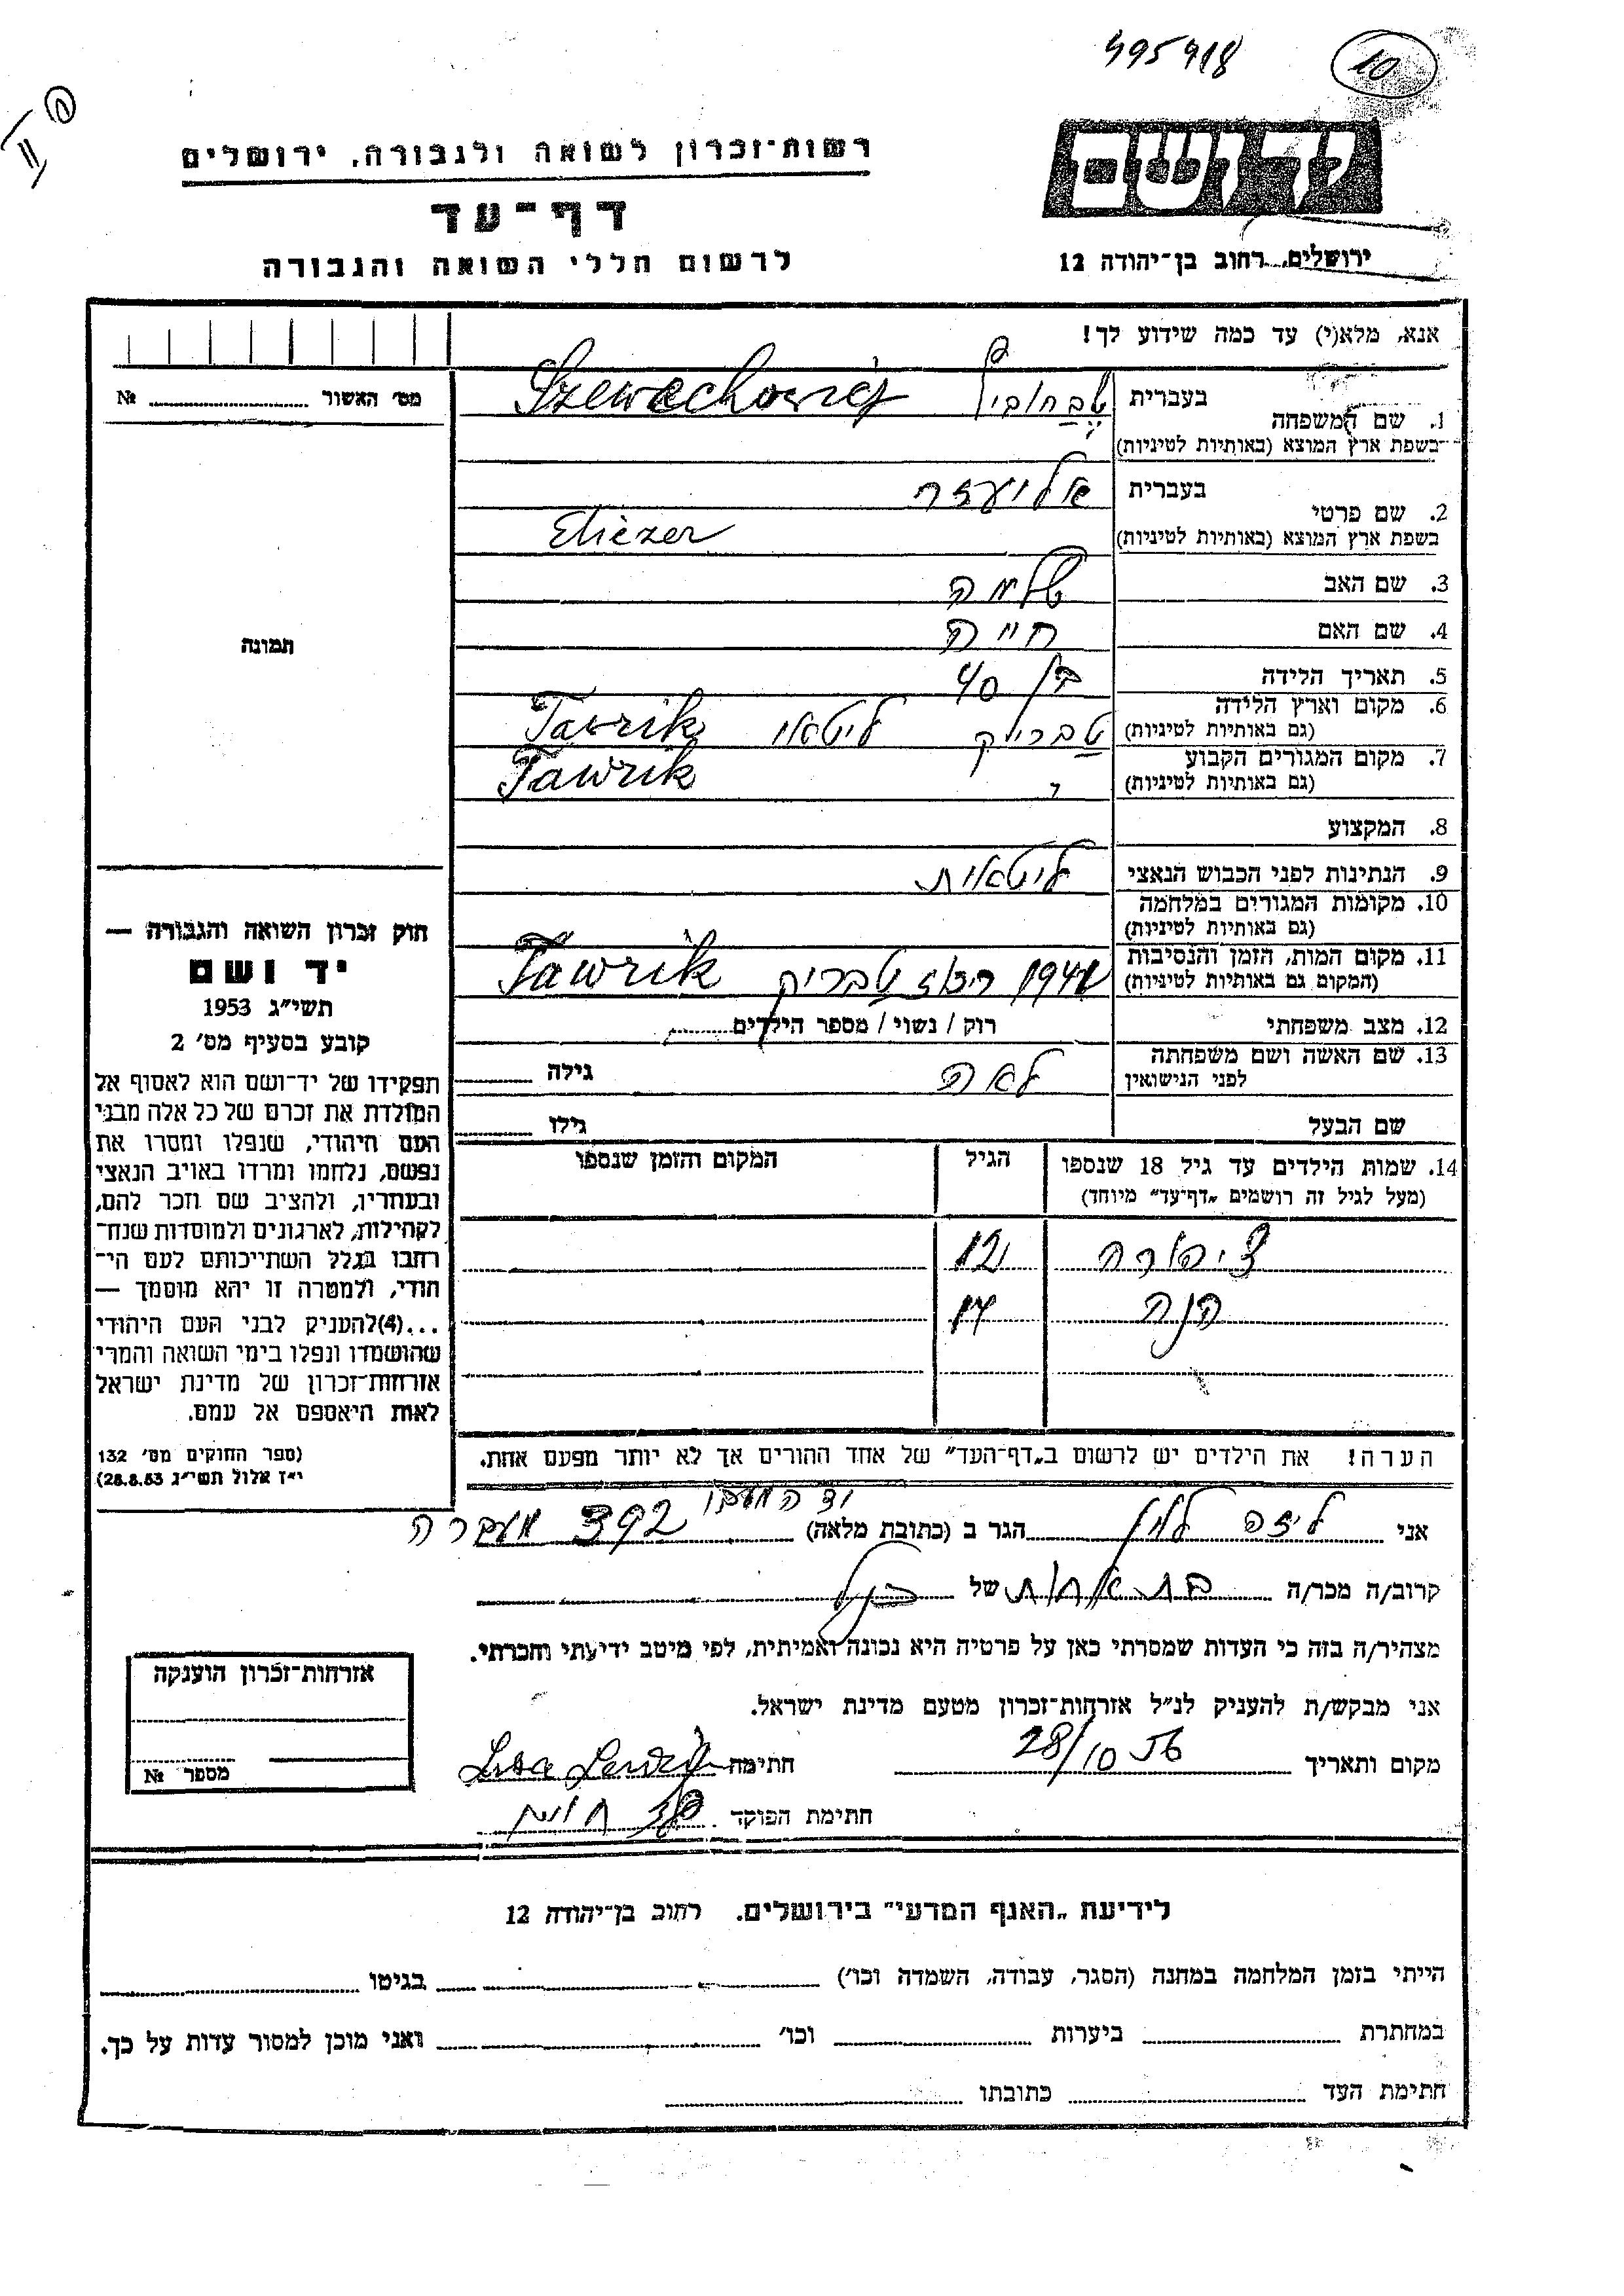 495918
10
יד ושם
רשות־זכרון לשואה ולגבורה, ירושלים
דף־עד
לרשום חללי השואה והגבורה
ירושלים, רחוב בן־יהודה 12
אנא, מלא(י) עד כמה שידוע לך!
מס' האשור № 
1. שם המשפחה
בעברית שבחוביץ Szewachowicz
בשפת ארץ המוצא (באותיות לטיניות)
2. שם פרטי
בעברית אליעזר
בשפת ארץ המוצא (באותיות לטיניות) Eliezer
3. שם האב שלמה
4. שם האם חייה
5. תאריך הלידה בן 40
6. מקום וארץ הלידה טבריק ליטא Tawrik
(גם באותיות לטיניות)
7. מקום המגורים הקבוע " Tawrik
(גם באותיות לטיניות)
8. המקצוע
9. הנתינות לפני הכבוש הנאצי ליטאית
10. מקומות המגורים במלחמה
(גם באותיות לטיניות)
11. מקום המות, הזמן והנסיבות 1941 טבריק Tawrik
(המקום גם באותיות לטיניות)
12. מצב משפחתי רוק / נשוי / מספר הילדים
13. שם האשה ושם משפחתה לאה גילה
לפני הנישואין
שם הבעל גילו
14. שמות הילדים עד גיל 18 שנספו הגיל המקום והזמן שנספו
(מעל לגיל זה רושמים „דף־עד" מיוחד)
ציפורה 12
חנה 14
הערה! את הילדים יש לרשום ב„דף־העד" של אחד ההורים אך לא יותר מפעם אחת.
תמונה
חוק זכרון השואה והגבורה —
יד ושם
תשי"ג 1953
קובע בסעיף מס' 2
תפקידו של יד־ושם הוא לאסוף אל
המולדת את זכרם של כל אלה מבני
העם היהודי, שנפלו ומסרו את
נפשם, נלחמו ומרדו באויב הנאצי
ובעוזריו, ולהציב שם וזכר להם,
לקהילות, לארגונים ולמוסדות שנח־
רבו בגלל השתייכותם לעם הי־
הודי, ולמטרה זו יהא מוסמך —
...(4) להעניק לבני העם היהודי
שהושמדו ונפלו בימי השואה והמרי
אזרחות־זכרון של מדינת ישראל
לאות היאספם אל עמם.
(ספר החוקים מס' 132
י"ז אלול תשי"ג 28.8.53)
אני ליזה לוין הגר ב (כתובת מלאה) 392 מעברה
קרוב/ה מכר/ה בת אחות של הנ"ל
מצהיר/ה בזה כי העדות שמסרתי כאן על פרטיה היא נכונה ואמיתית, לפי מיטב ידיעתי והכרתי.
אני מבקש/ת להעניק לנ"ל אזרחות־זכרון מטעם מדינת ישראל.
מקום ותאריך 28/10 56 חתימה Lisa Lewin
חתימת הפוקד
אזרחות־זכרון הוענקה
מספר №
לידיעת „האגף המדעי" בירושלים. רחוב בן־יהודה 12
הייתי בזמן המלחמה במחנה (הסגר, עבודה, השמדה וכו') בגיטו
במחתרת ביערות וכו' ואני מוכן למסור עדות על כך.
חתימת העד כתובתו